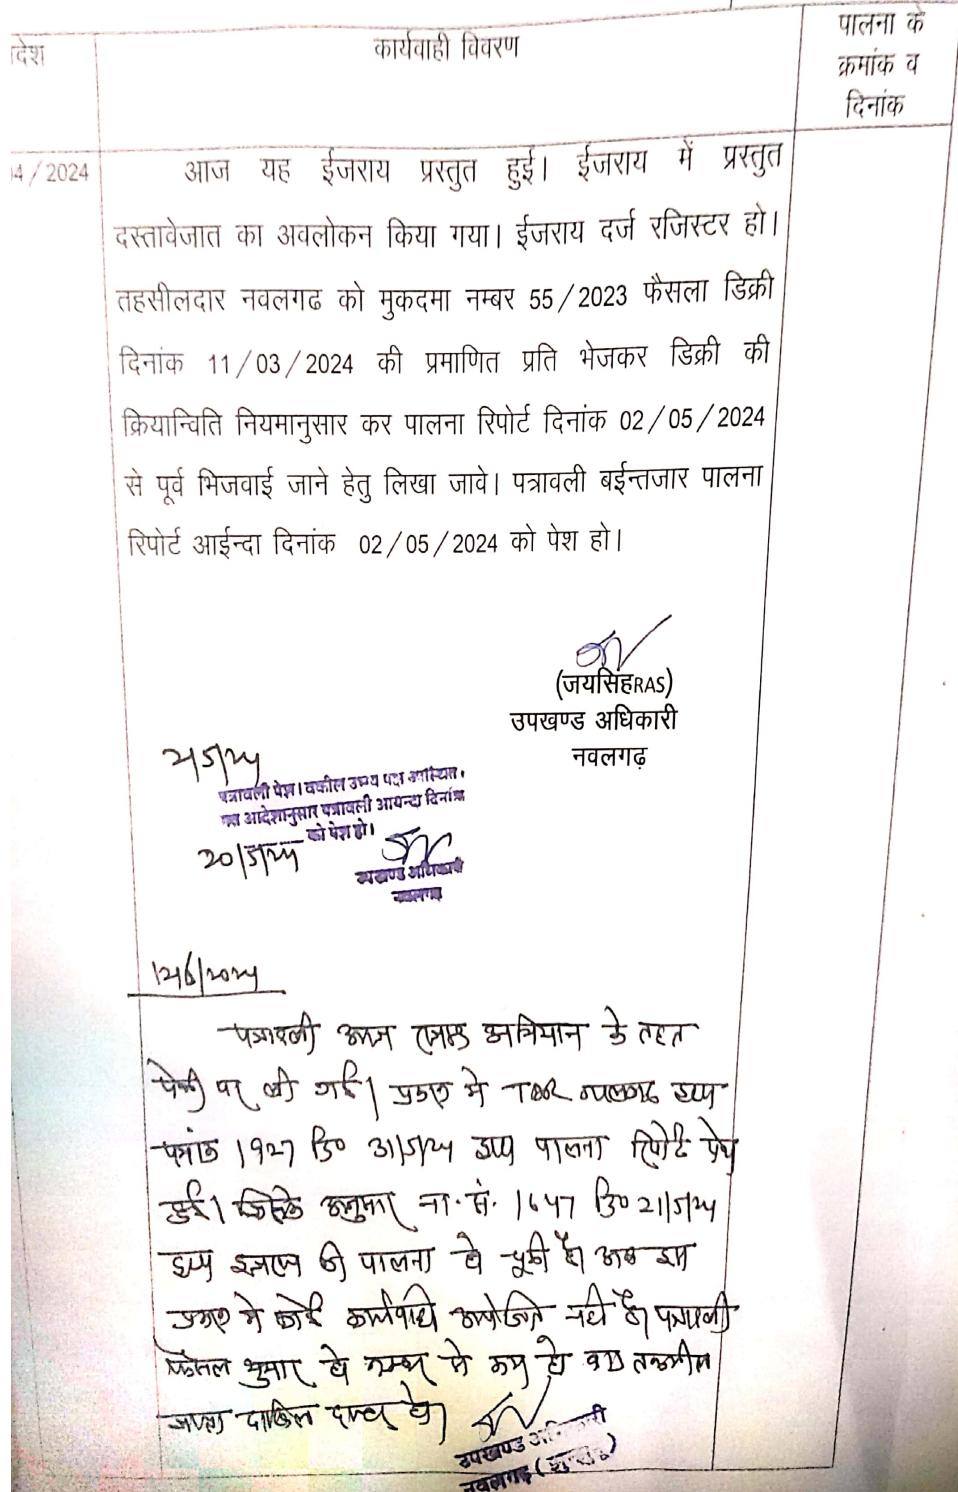 देश
कार्यवाही विवरण
पालना के
क्रमांक व
दिनांक
04/2024
आज यह ईजराय प्रस्तुत हुई। ईजराय में प्रस्तुत
दस्तावेजात का अवलोकन किया गया। ईजराय दर्ज रजिस्टर हो।
तहसीलदार नवलगढ को मुकदमा नम्बर 55/2023 फैसला डिक्री
दिनांक 11/03/2024 की प्रमाणित प्रति भेजकर डिक्री की
क्रियान्विति नियमानुसार कर पालना रिपोर्ट दिनांक 02/05/2024
से पूर्व भिजवाई जाने हेतु लिखा जावे। पत्रावली बईन्तजार पालना
रिपोर्ट आईन्दा दिनांक 02/05/2024 को पेश हो।
(जयसिंहRAS)
उपखण्ड अधिकारी
नवलगढ़
2/5/24
पत्रावली पेश। वकील उभय पक्ष उपस्थित।
आदेशानुसार पत्रावली आयन्दा दिनांक
को पेश हो।
20/5/24
उपखण्ड अधिकारी
नवलगढ़
12/6/2024
पत्रावली आज अभियान के तहत
पेशी पर ली गई। प्रकरण में TDR नवलगढ द्वारा
पत्रांक 1927 दि० 31/5/24 द्वारा पालना रिपोर्ट पेश
हुई। जिसके अनुसार ना.सं. 1647 दि० 21/5/24
द्वारा इजराय की पालना हो चुकी है। अब इस
प्रकरण में कोई कार्यवाही अपेक्षित नहीं है। पत्रावली
फैसल शुमार हो नम्बर से कम हो बाद तकमील
दाखिल दफ्तर हो।
उपखण्ड अधिकारी
नवलगढ़ (झुन्झुनू)